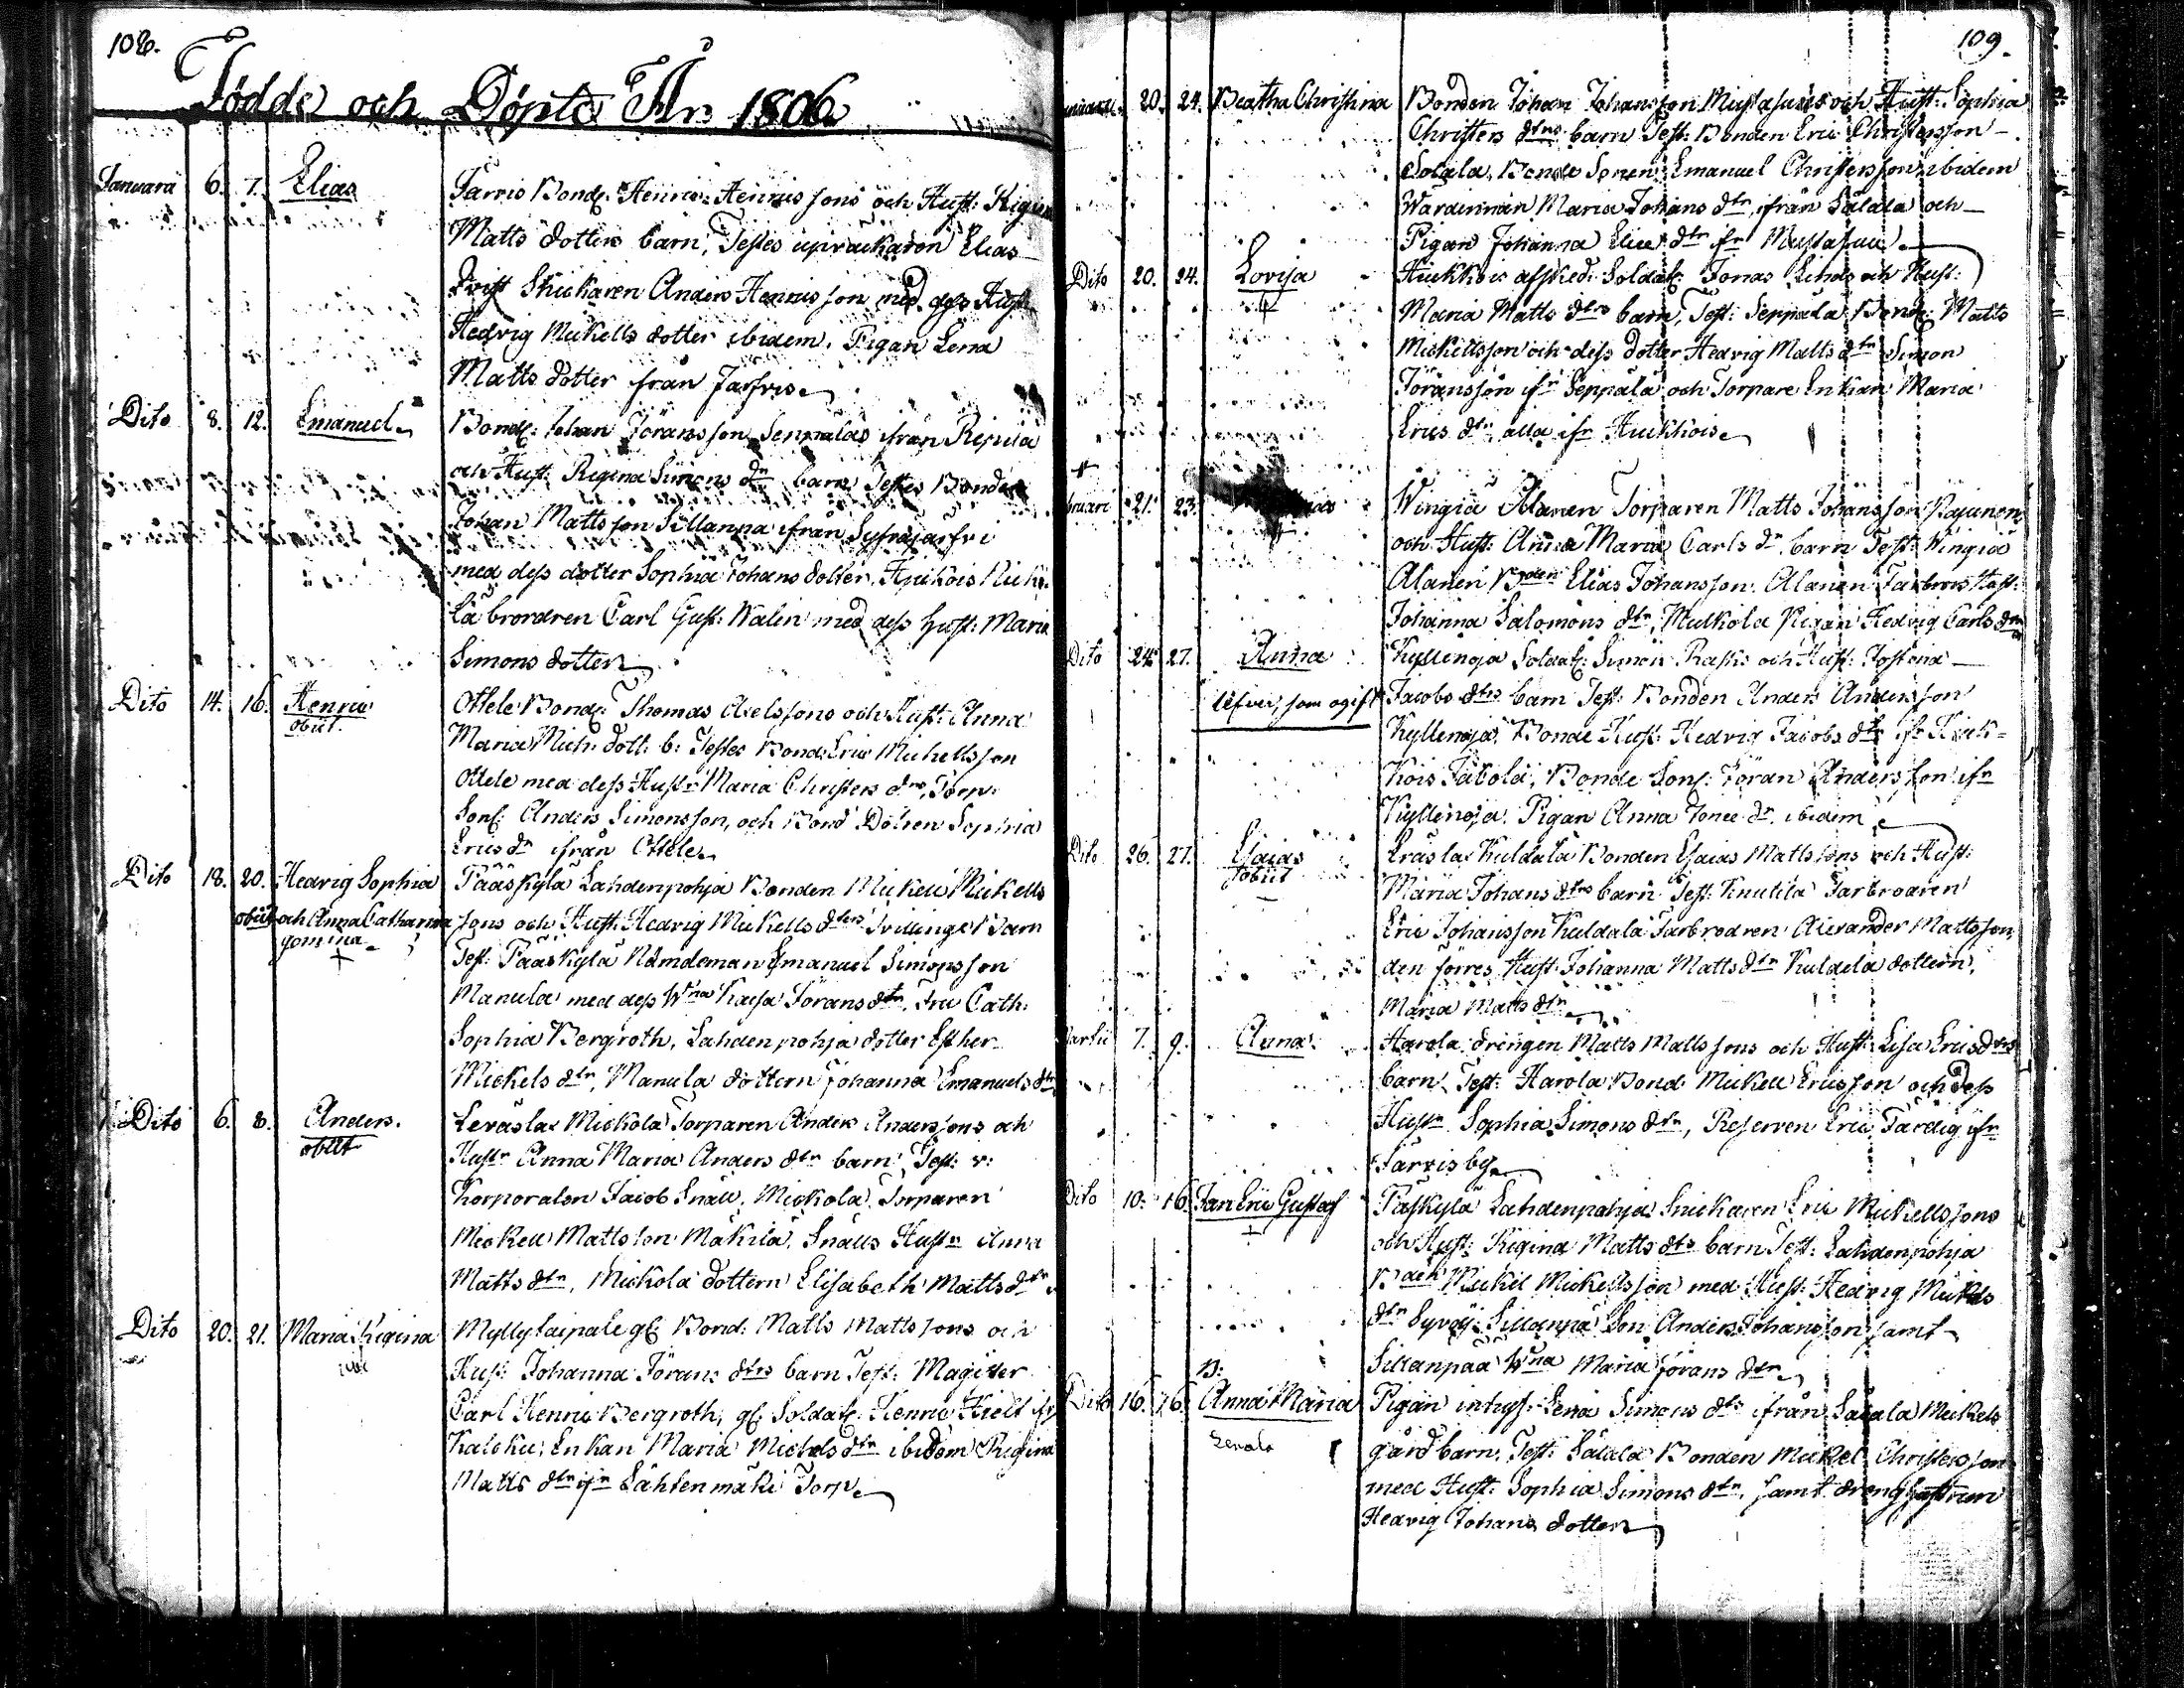 108.
Födde och Döpte År 1806
Januarii 6. 7. Elias Jarvis Bond: Henric Henricssons och Hust: Regina
Matts dotters barn, Testes uprackaren Elias
Qvist Snickaren Anders Henricsson med dess Hust:
Hedvig Mickells dotter ibidem. Pigan Lena
Matts dotter från Jarfvis
Dito 8. 12. Emanuel Bond: Johan Jöransson Seppalas ifrån
och Hust: Regina Simons dr barn Testes Bonden
Johan Mattsson Sillanpa ifrån
med dess dotter Sophia Johans dotter,
brordren Carl Gust: Walin med dess Hust: Maria
Simons dotter
Dito 14. 16. Henric Ottele Bond: Thomas Axelssons och Hust: Anna
obiit. Maria Mich: dott: b: Testes Bond: Eric Michellsson
Ottele med dess Hustr Maria Christers dr, Torp:
Son: Anders Simonsson, och Bond Dotren Sophia
Ericsdr ifrån Ottele
Dito 18. 20. Hedvig Sophia Pääskylä Lahdenpohja Bonden Mickell Mickells
obiit och Anna Catharina sons och Hust: Hedvig Mickells dtrs Tvillinge Barn
gemina Test: Pääskylä Nämdeman Emanuel Simonsson
+ Manula med dess Wrna Kaisa Jörans dtr. Fru Cath:
Sophia Bergroth, Lahdenpohja dotter Esther
Mickels dtr, Manula dottern Johanna Emanuels dtr
Dito 6. 8. Anders. Leväslax Mickola Torparen Anders Anderssons och
obiit Hustr Anna Maria Anders dtr barn Test: v:
Korporalen Jacob Snäll, Mickola Torparen
Mickell Mattsson Mäkilä, Snälls Hustr Anna
Matts dtr, Mickola dottern Elisabeth Matts dtr
Dito 20. 21. Maria Regina Myllytaipale gl: Bond: Matts Mattssons och
Hust: Johanna Jörans dtrs barn Test: Magister
Carl Henric Bergroth, gl: Soldat: Henric Hielt ifr
Enkan Maria Michels dtr ibidem Regina
Matts dtr ifr Lähtenmäki Torp
109.
20. 24. Beatha Christina Bonden Johan Johansson Mustasuus och Hust: Sophia
Christers dtrs barn Test: Bonden Eric Christersson
Salala, Bonde Sonen Emanuel Christersson ibidem
Wärdinnan Maria Johans dtr ifrån Sälala och
Pigan Johanna Erics dtr ifr Mustasuu
Dito 20. 24. Lovisa Huckhois afsked: Soldat: Jonas Linds och Hust:
+ Maria Matts dtrs barn, Test: Seppälä Bond: Matts
Mickellsson och dess dotter Hedvig Matts dtr Simon
Jöransson ifr Seppälä och Torpare Enkan Maria
Erics dtr alla ifr Huckhois
+
21. 23. Wingiä Alanen Torparen Matts Johansson Pajunen
och Hust: Anna Maria Carls dr. barn Test: Wingiä
Alanen Bonden Elias Johansson Alanen Farbrors Hust:
Johanna Salomons dtr, Mulkola Pigan Hedvig Carls dtr
Dito 24. 27. Anna Kyllenoja Soldat: Simon Rasks och Hust: Justina
som ogift Jacobs dtrs barn Test: Bonden Anders Andersson
Kyllenoja. Bonde Hust: Hedvig Jacobs dtr ifr Huck-
hois Jätolä, Bonde Son: Jöran Andersson ifr
Kyllenoja. Pigan Anna dr. ibidem
Dito 26. 27. Esaias Kuldala Bonden Esaias Mattssons och Hust:
obiit Maria Johans dtrs barn Test: Knutila Farbroaren
Eric Johansson Kuldala Farbrodren Alexander Mattsson,
den förres Hust: Johanna Matts dtr Kuldala dottern,
Maria Matts dtr
Martii 7. 9. Anna Harola drängen Matts Mattssons och Hust: Lisa Ericsdtrs
barn Test: Harola Bond: Mickell Ericsson och dess
Hustr Sophia Simons dtr, Reserven Eric Färdig ifr
Jarvis by
Dito 10. 16. Jan Eric Gustaf Päskylä Lahdenpohja Snickaren Eric Mickellssons
+ och Hust: Regina Matts dts barn Test: Lahdenpohja
Bden Mickel Mickelsson med Hust: Hedvig Mickels
dtr Syväj: Sillanpä Son Anders Johansson samt
Sillanpaa Wrna Maria Jörans dtr
Dito 16. 16. Anna Maria Pigan inhys: Lena Simons dts ifrån Sälala Mickels
gård barn. Test: Sälala Bonden Mickel Christersson
med Hust: Sophia Simons dtr, samt dräng hustrun
Hedvig Johans dotter